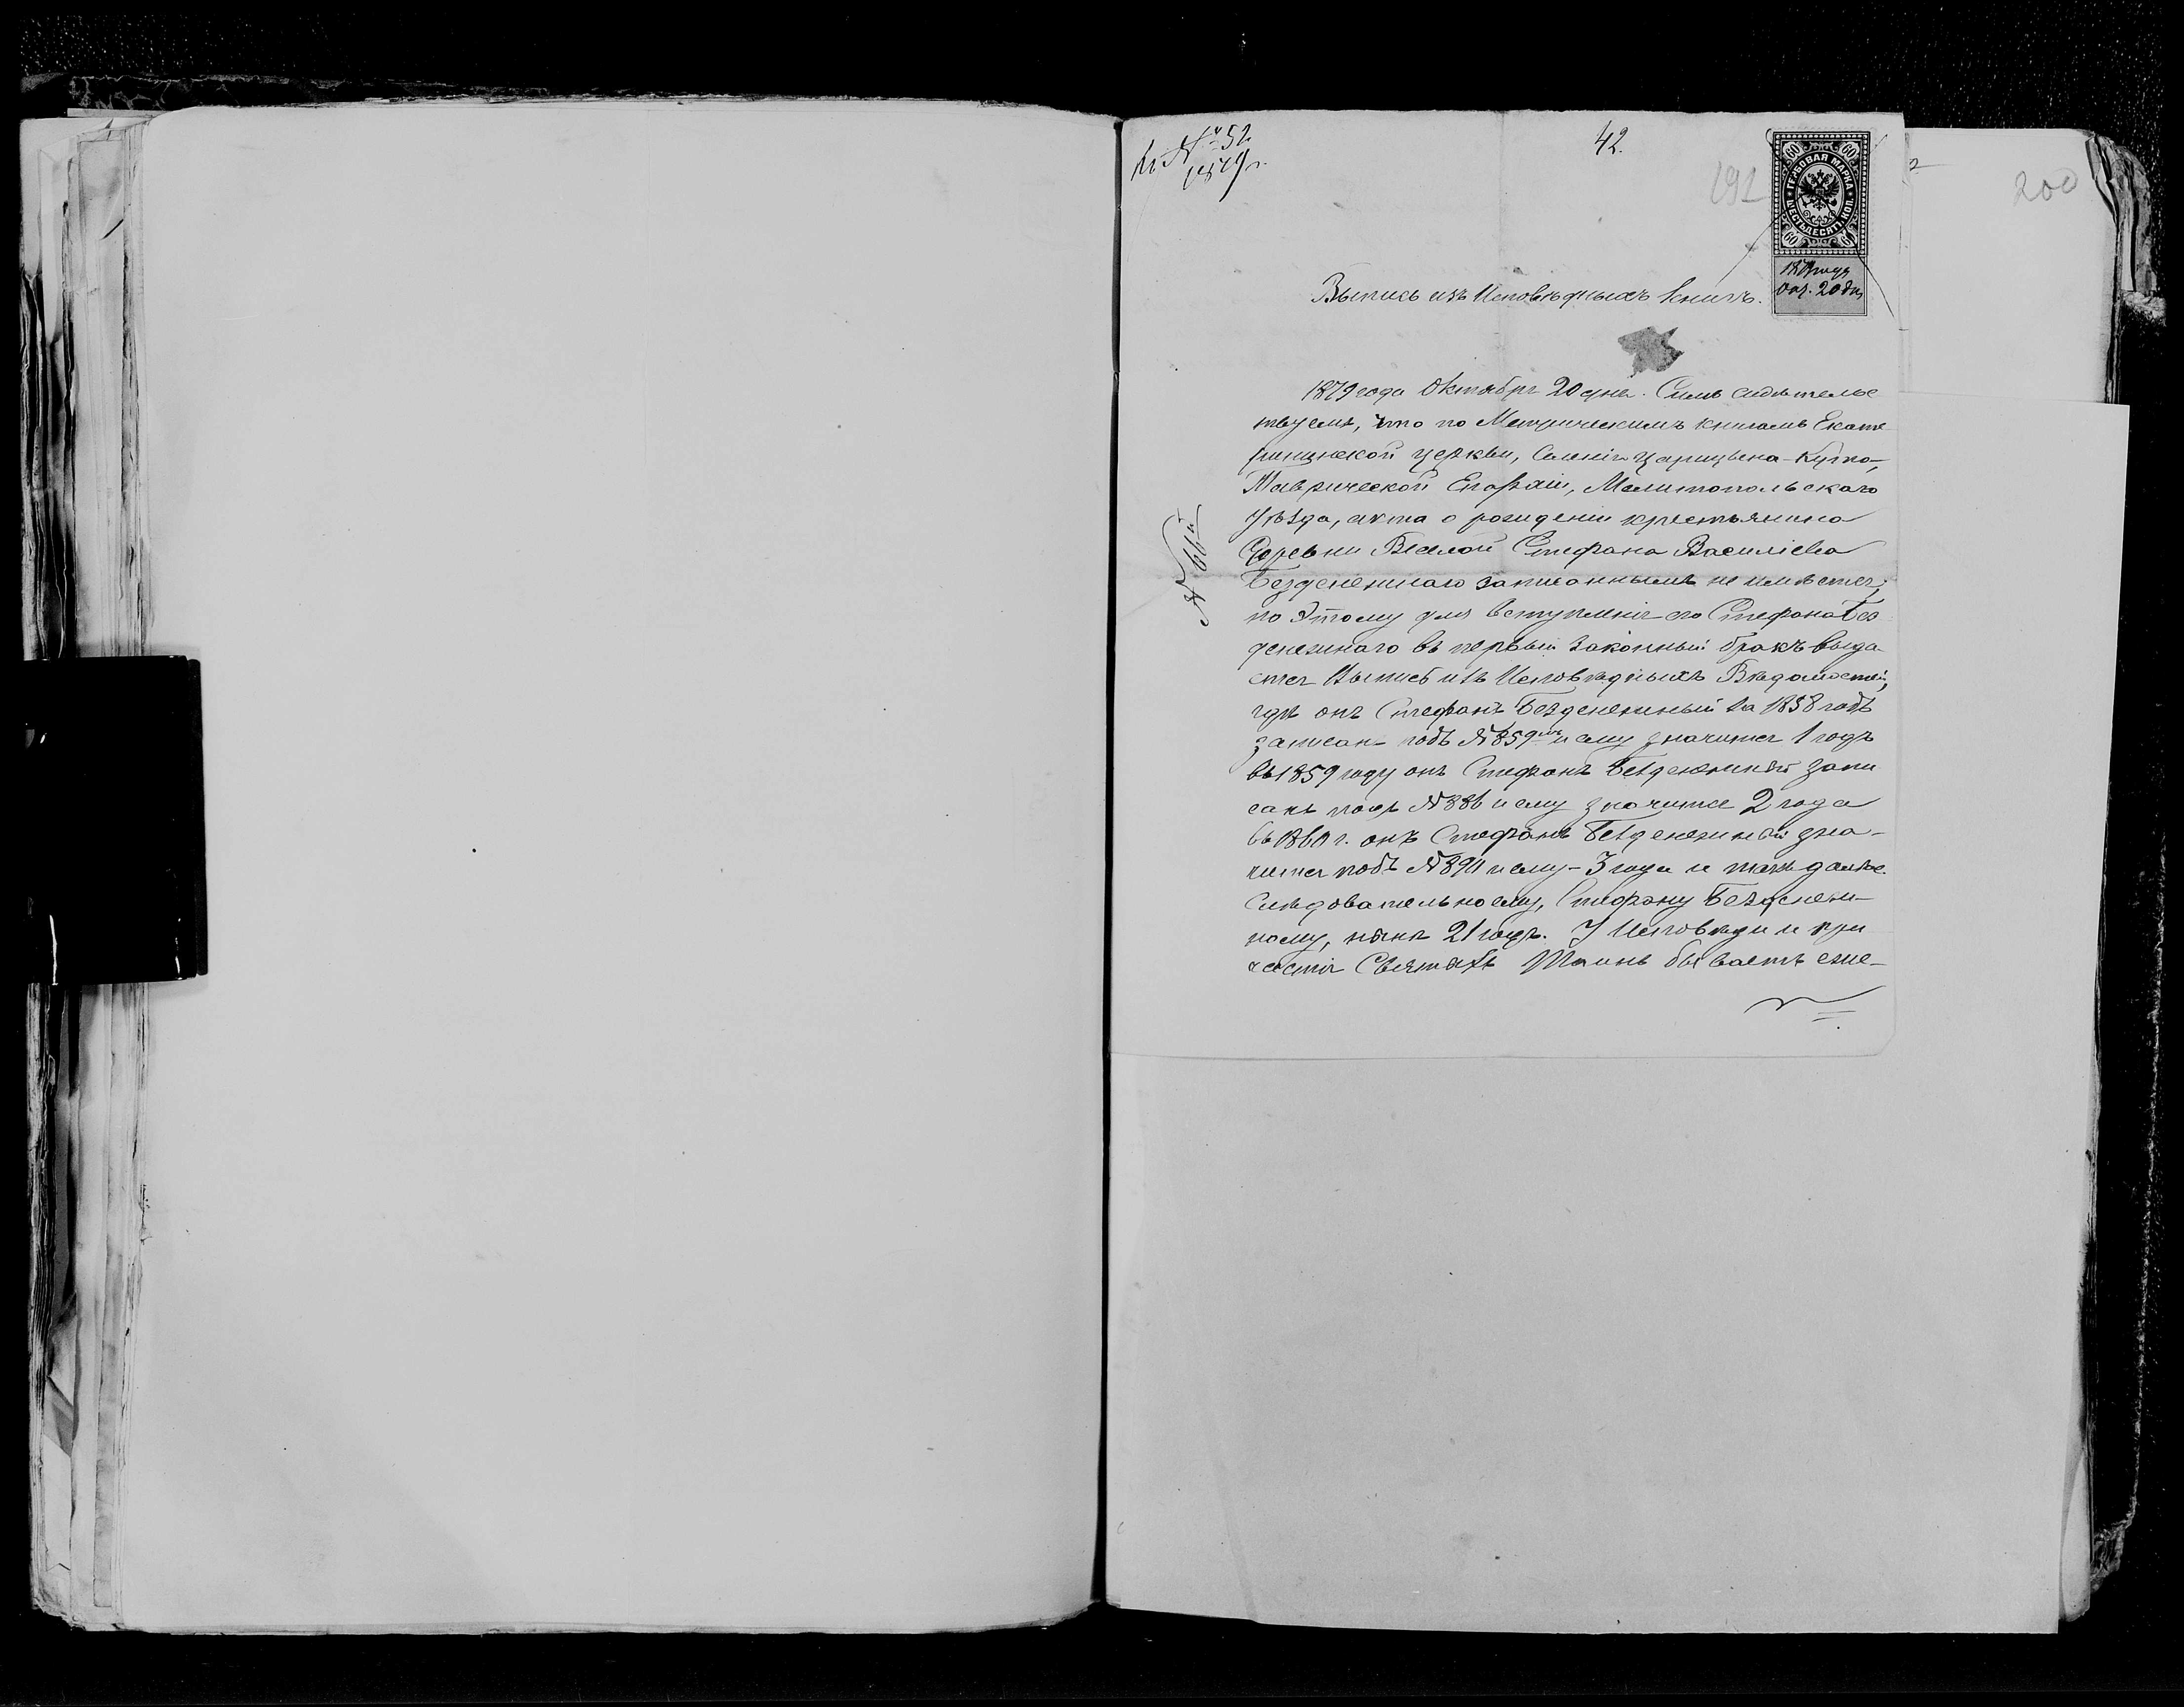 Къ № 52
1879 г.
42.
192
200
60 60
ГЕРБОВАЯ МАРКА
ШЕСТЬДЕСЯТЪ КОП.
60 60
1879 года
Окт. 20 дня
Выпись изъ Исповѣдныхъ Книгъ.
1879 года Октября 20 дня. Симъ свидѣтельс
твуемъ, что по Метрическимъ книгамъ Екате
рининской церкви, Селенія Царицына-Кута,
Таврической Епархіи, Мелитопольскаго
Уѣзда, акта о рожденіи крестьянина
Деревни Веселой Стефана Василіева
Безденежнаго записаннымъ не имѣется,
по этому для вступленія его Стефана Без
денежнаго въ первый законный бракъ выда-
ется Выпись изъ Исповѣдныхъ Вѣдомостей,
гдѣ онъ Стефанъ Безденежный за 1858 годъ
записанъ подъ № 859 и ему значится 1 годъ
въ 1859 году онъ Стефанъ Безденежный запи
санъ подъ № 886 и ему значится 2 года
въ 1860 г. онъ Стефанъ Безденежный зна-
чится подъ № 894 и ему - 3 года и такъ далѣе.
Слѣдовательно ему, Стефану Безденеж-
ному, нынѣ 21 годъ. У Исповѣди и при
частія Святыхъ Таинъ бываетъ еже-